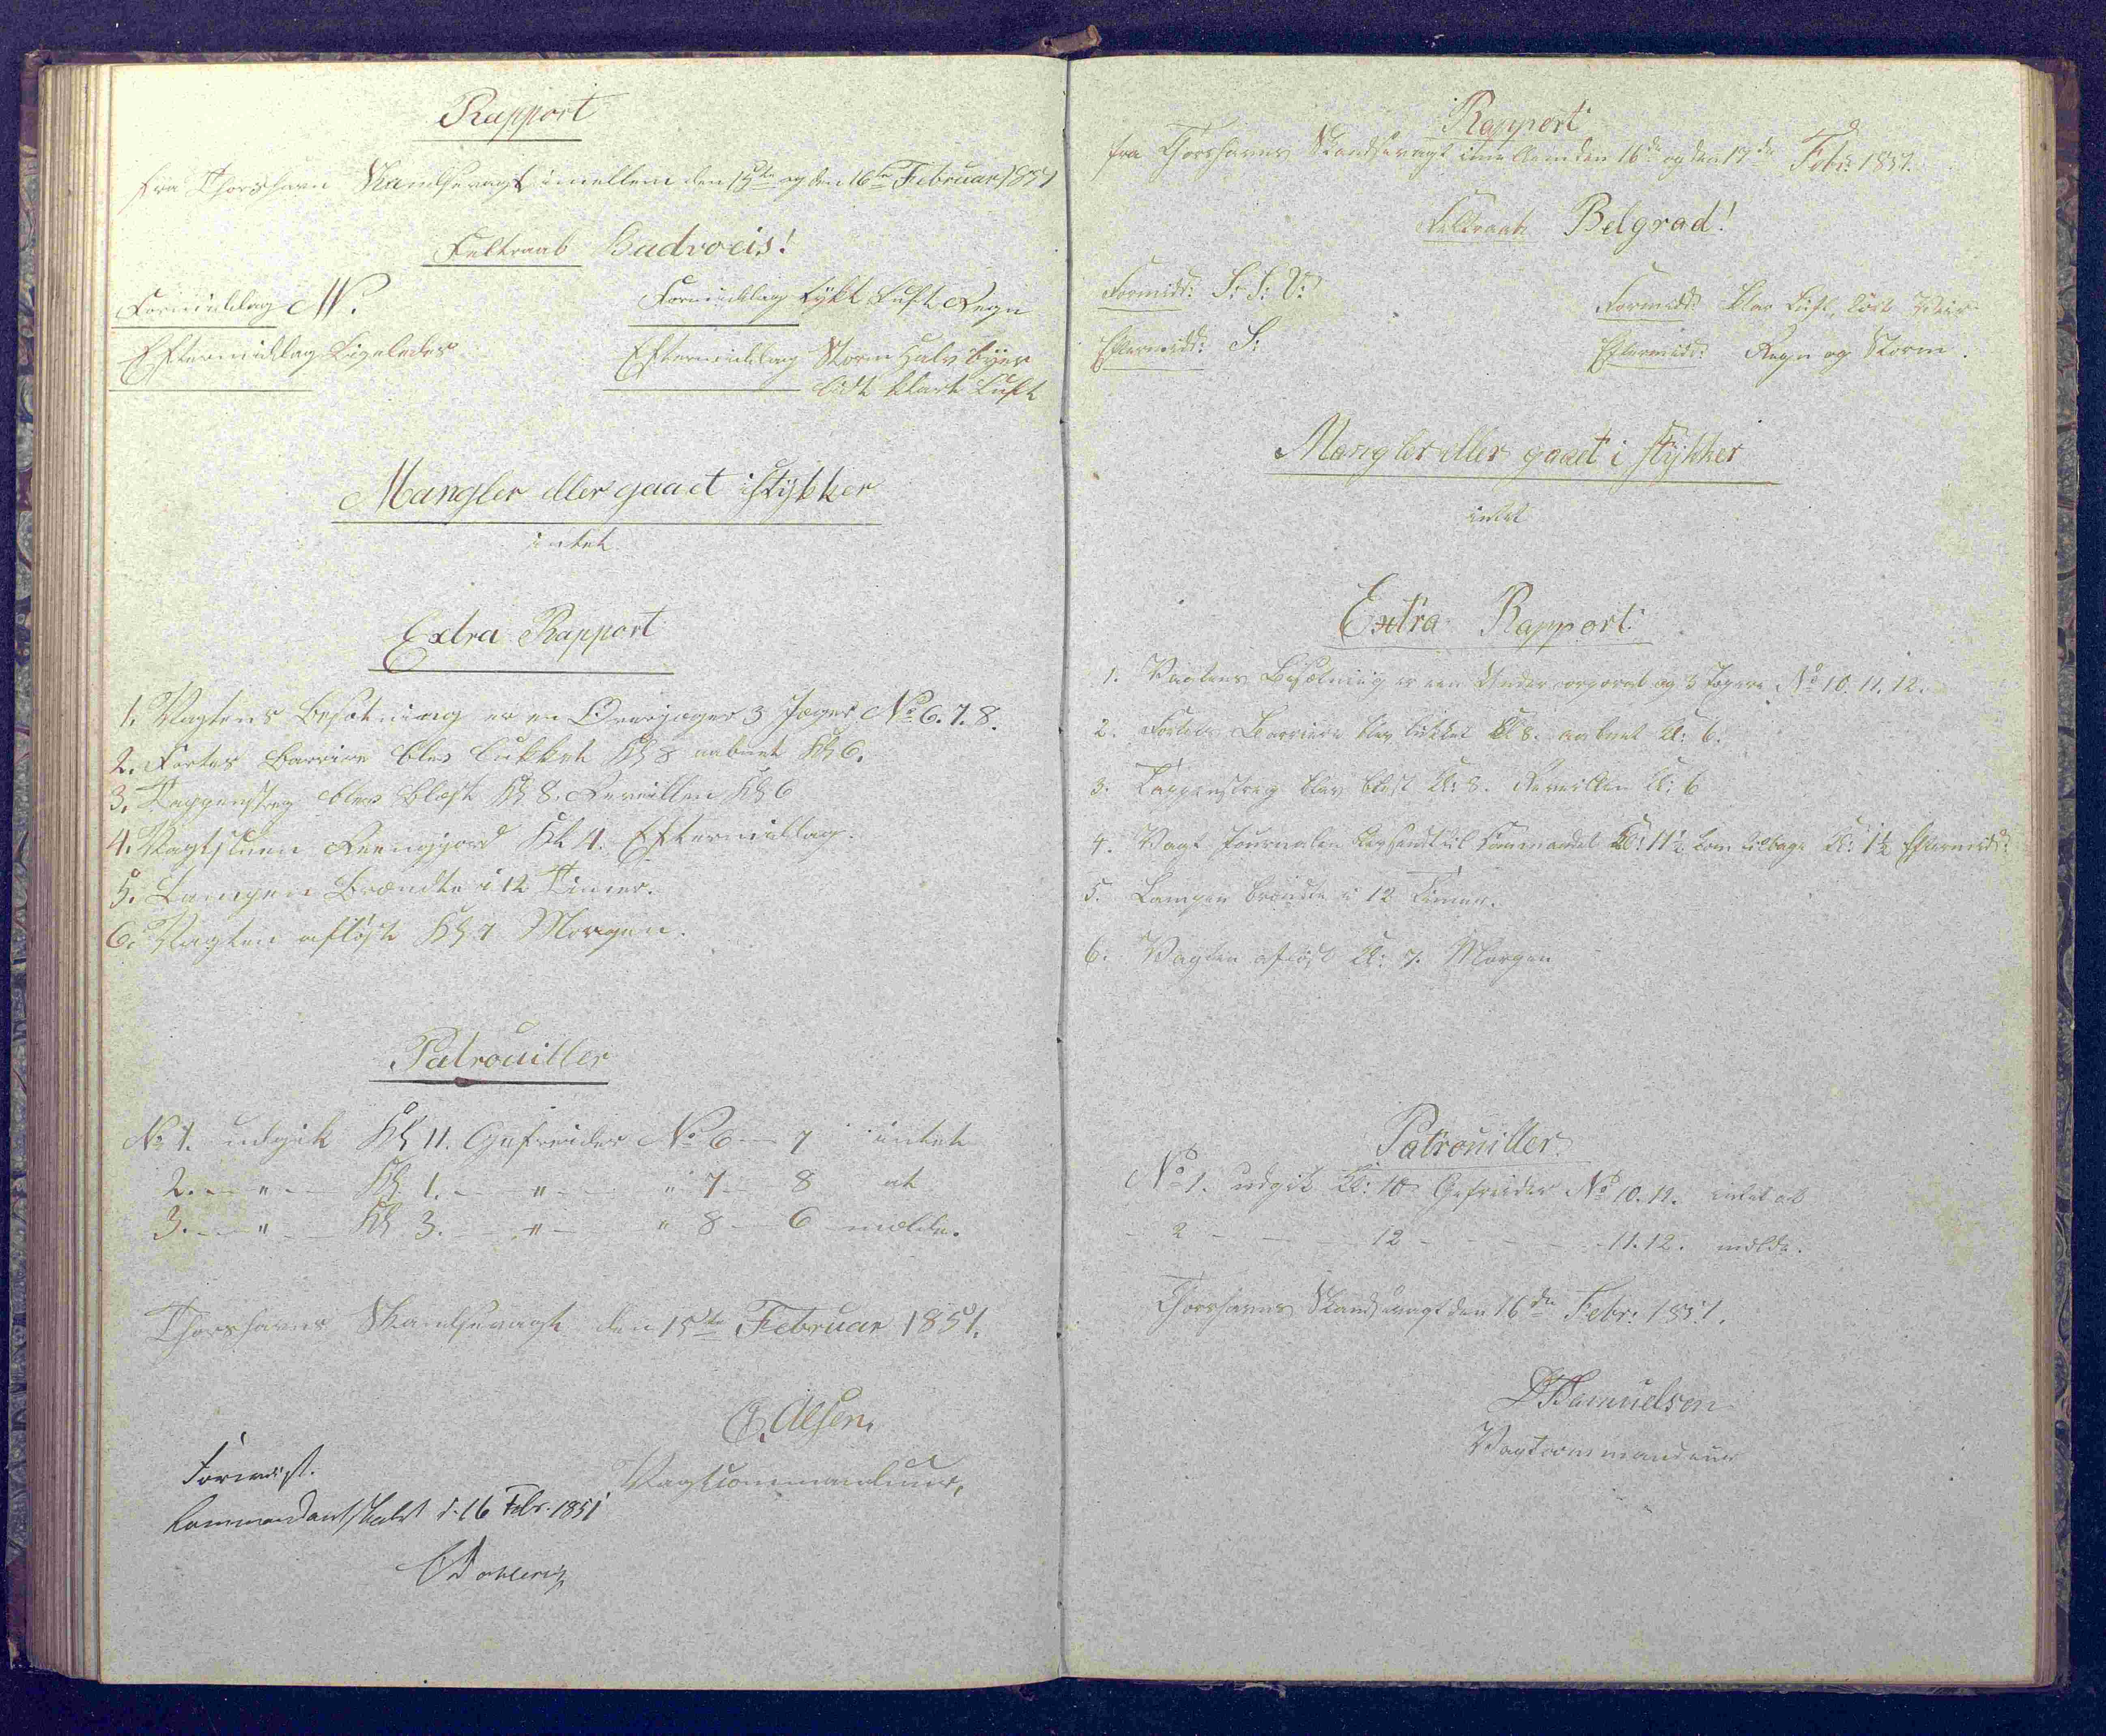 Rapport
fra Thorshavn Skandsevagt imellem den 15de og den 16de Februar 1851
Feltraab Badvoeis!
Formiddag N.
Formiddag tykt Luft Regn
Eftermiddag Ligeledes
Eftermiddag Storm Halv byger
lidt klart Luft
Mangler eller gaaet i stykker
intet
Extra Rapport
1. Vagtens Besætning er en Overjæger 3 Jæger No 6. 7. 8.
2. Fortes Barriere blev lukket Kl 8 aabnet Kl 6.
3. Tappenstreg blev blæst Kl 8. Reveillen Kl 6
4. Vagtstuen Reengjord Kl 4. Eftermiddag.
5. Lampen Brændte i 12 Timer.
6. Vagten afløste Kl 7 Morgen.
Patrouiller
No 1. udgik Kl 11. Gefreider No 6 - 7 intet
2. - " - Kl 1. - " - " 7 - 8 at
3. - " - Kl 3. - " - " 8 - 6 melde.
Thorshavns Skandsevagt den 15de Februar 1851.
Olsen,
Vagtcommandeur,
Forevist.
Kommandantskabet d. 16 Febr. 1851
Rapport
fra Thorshavns Skandsevagt imellem den 16de og den 17de Febr: 1851.
Feltraab Belgrad!
Formidd: S: S: V:
Formidd: klar Luft, lidt Veir
Eftermidd: S:
Eftermidd: Regn og Storm.
Mangler eller gaaet i stykker
intet
Extra Rapport
1. Vagtens Besætning er een Undercorporal og 3 Jægere No 10. 11. 12.
2. Fortets Barriere blev lukket Kl 8. aabnet Kl: 6.
3. Tappenstreg blev blæst Kl: 8. Reveillen Kl: 6
4. Vagt Journalen blev sendt til Commandet Kl: 11½ kom tilbage Kl: 1½ Eftermidd:
5. Lampen brændte i 12 Timer.
6. Vagten afløst Kl: 7. Morgen
Patrouiller
No 1. udgik Kl: 10 Gefreider No 10. 11. intet at
- 2 - - - 12 - - - - 11. 12. melde.
Thorshavns Skandsevagt den 16de Febr: 1851.
Samuelsen
Vagtcommandeur